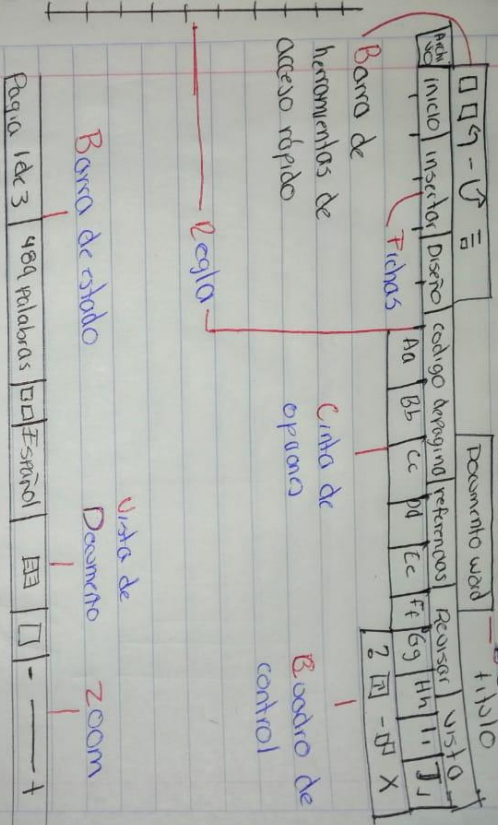 Documento word
titulo
Archivo
inicio
insertar
Diseño
codigo depagina
referencias
Revisar
Vista
Aa
Bb
Cc
Dd
Ec
Ff
Gg
Hh
Ii
Jj
? - X
Barra de
herramientas de
acceso rápido
Fichas
Cinta de
opciones
Buadro de
control
Regla
Barra de estado
Vista de
Documento
Zoom
Pagia 1 de 3
489 palabras
Español
- +